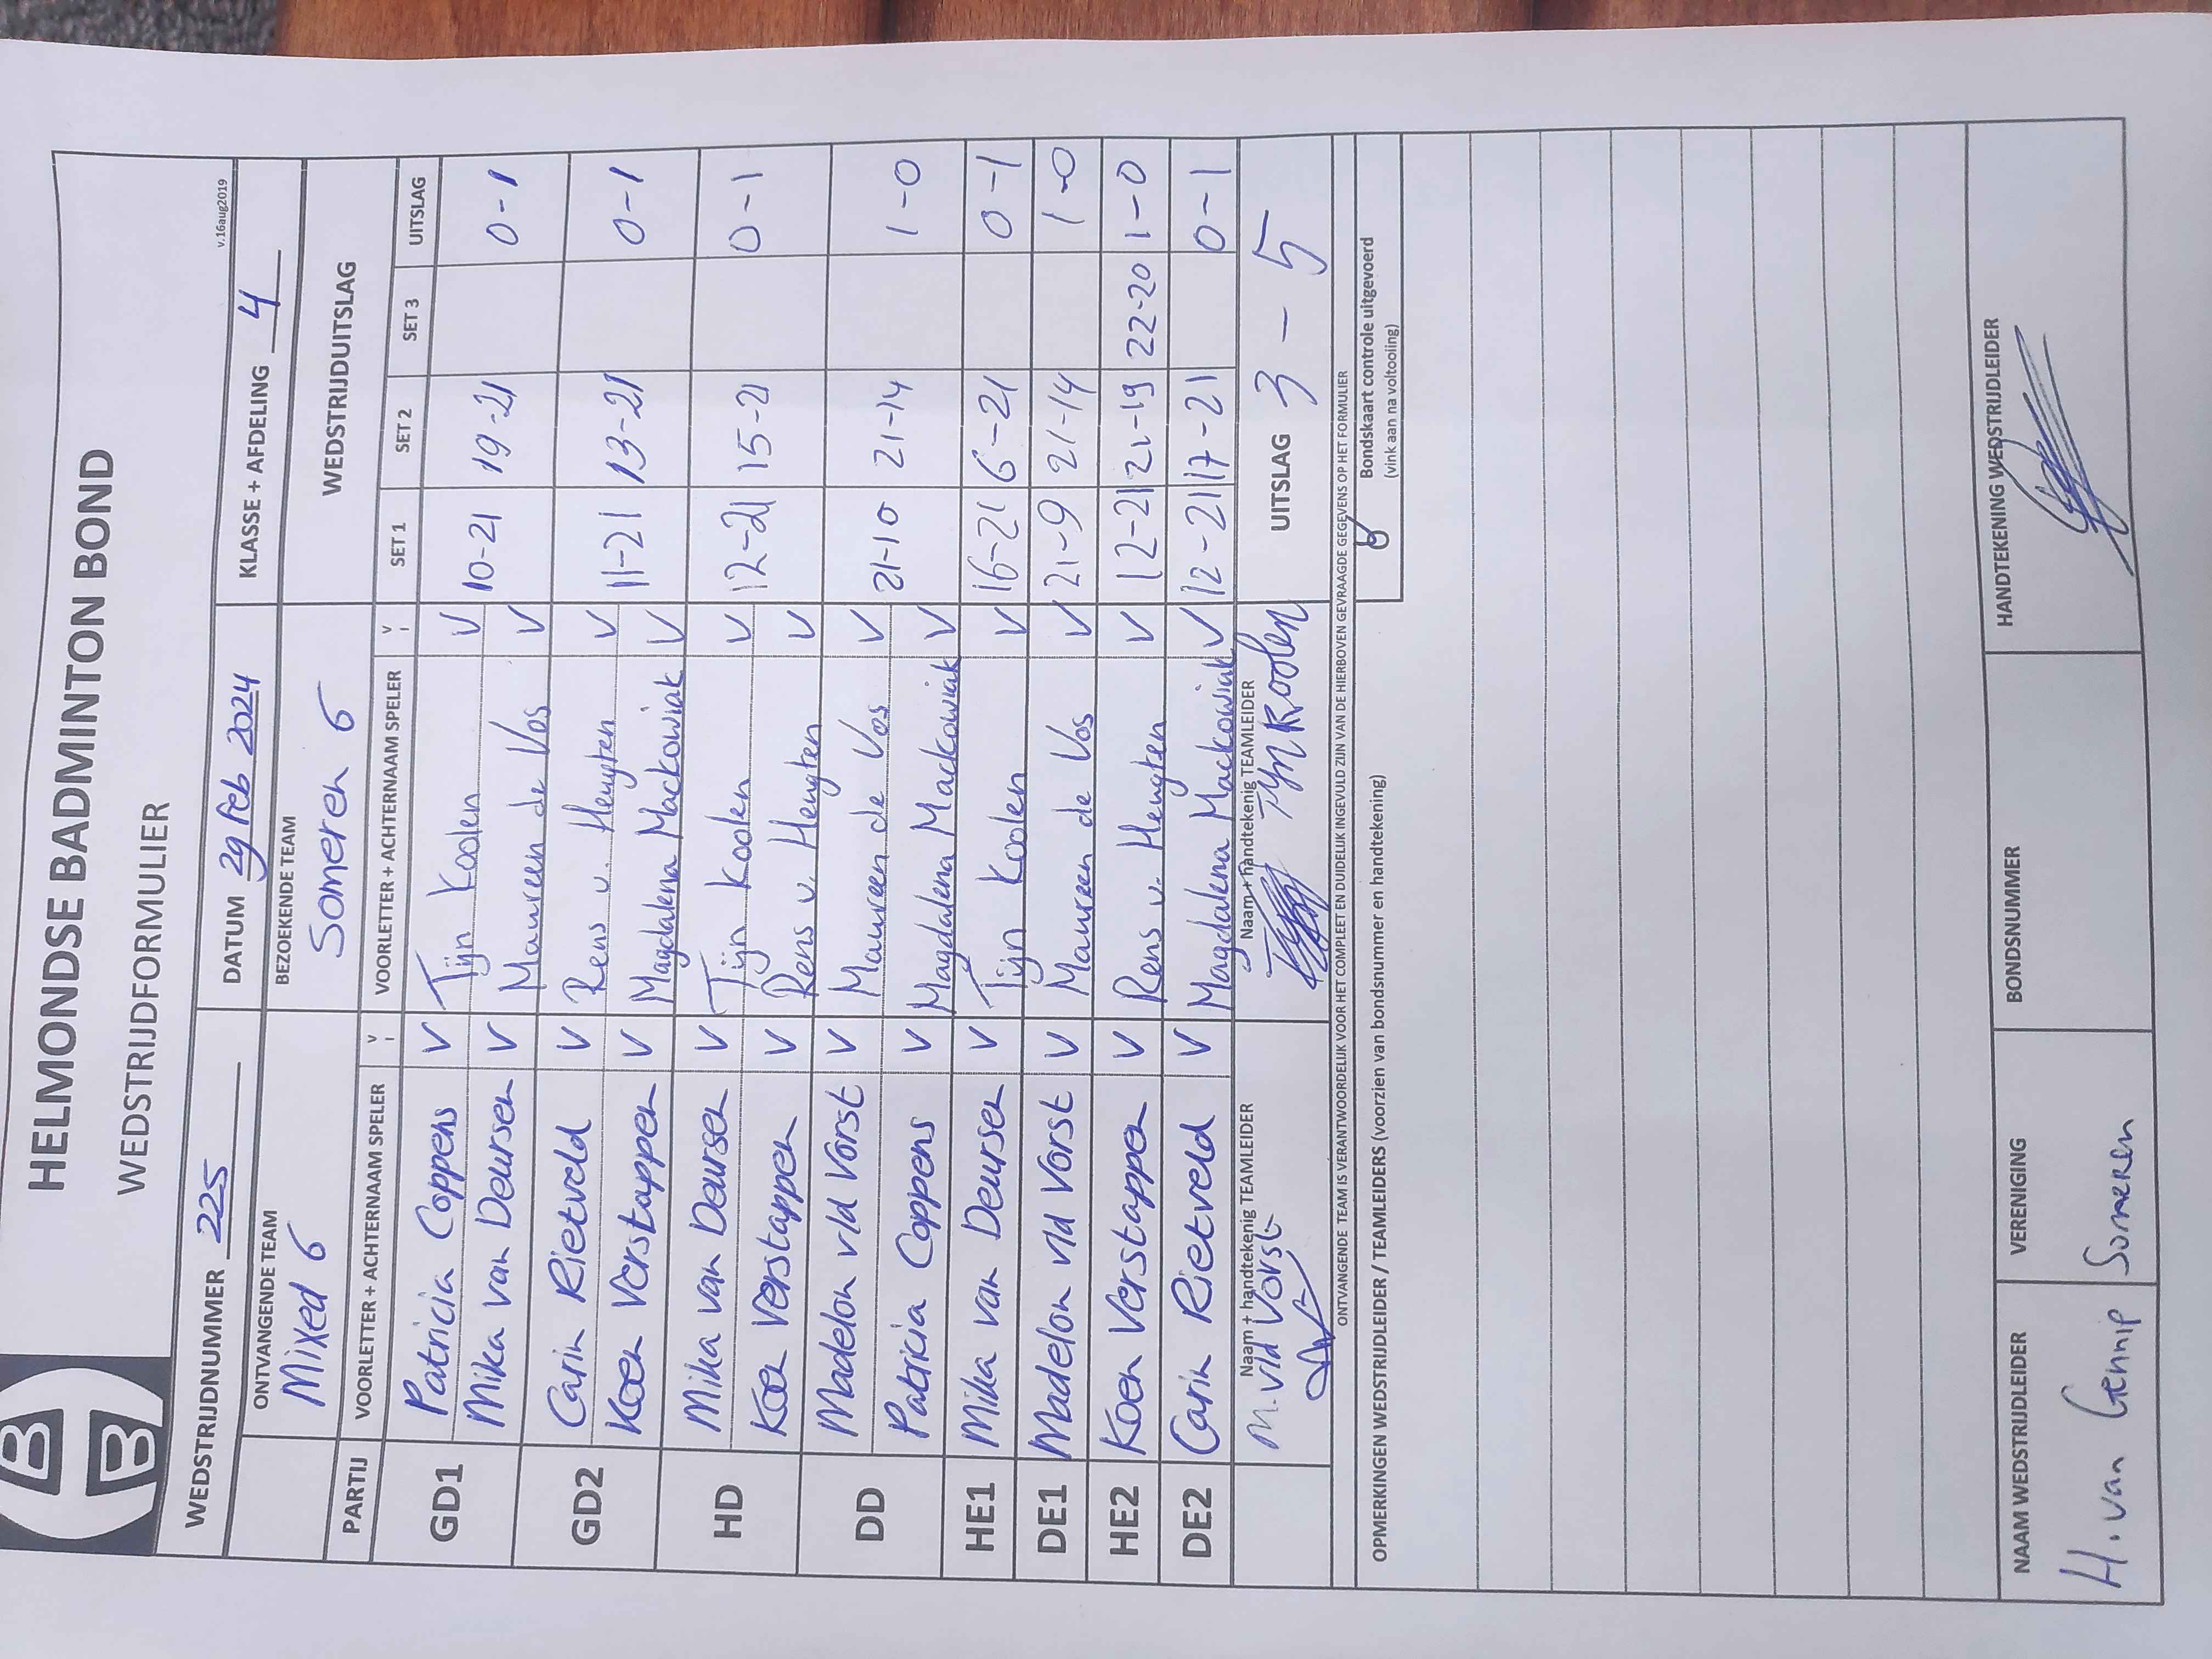 B
B
HELMONDSE BADMINTON BOND
WEDSTRIJDFORMULIER
v.16aug2019
WEDSTRIJDNUMMER 225 DATUM 29 feb 2024 KLASSE + AFDELING 4
ONTVANGENDE TEAM BEZOEKENDE TEAM WEDSTRIJDUITSLAG
Mixed 6 Someren 6
PARTIJ VOORLETTER + ACHTERNAAM SPELER V VOORLETTER + ACHTERNAAM SPELER V SET 1 SET 2 SET 3 UITSLAG
GD1 Patricia Coppens V Tijn Koolen V 10-21 19-21 0-1
Mika van Deursen V Maureen de Vos V
GD2 Carin Rietveld V Rens v. Heugten V 11-21 13-21 0-1
Koen Verstappen V Magdalena Mackowiak V
HD Mika van Deursen V Tijn Koolen V 12-21 15-21 0-1
Koen Verstappen V Rens v. Heugten V
DD Madelon v/d Vorst V Maureen de Vos V 21-10 21-14 1-0
Patricia Coppens V Magdalena Mackowiak V
HE1 Mika van Deursen V Tijn Koolen V 16-21 6-21 0-1
DE1 Madelon v/d Vorst V Maureen de Vos V 21-9 21-14 1-0
HE2 Koen Verstappen V Rens v. Heugten V 12-21 21-19 22-20 1-0
DE2 Carin Rietveld V Magdalena Mackowiak V 12-21 17-21 0-1
Naam + handtekenig TEAMLEIDER Naam + handtekenig TEAMLEIDER UITSLAG 3 - 5
M. v/d Vorst Tyn Koolen
ONTVANGENDE TEAM IS VERANTWOORDELIJK VOOR HET COMPLEET EN DUIDELIJK INGEVULD ZIJN VAN DE HIERBOVEN GEVRAAGDE GEGEVENS OP HET FORMULIER
OPMERKINGEN WEDSTRIJDLEIDER / TEAMLEIDERS (voorzien van bondsnummer en handtekening) Bondskaart controle uitgevoerd
(vink aan na voltooiing)
NAAM WEDSTRIJDLEIDER VERENIGING BONDSNUMMER HANDTEKENING WEDSTRIJDLEIDER
H. van Gennip Someren